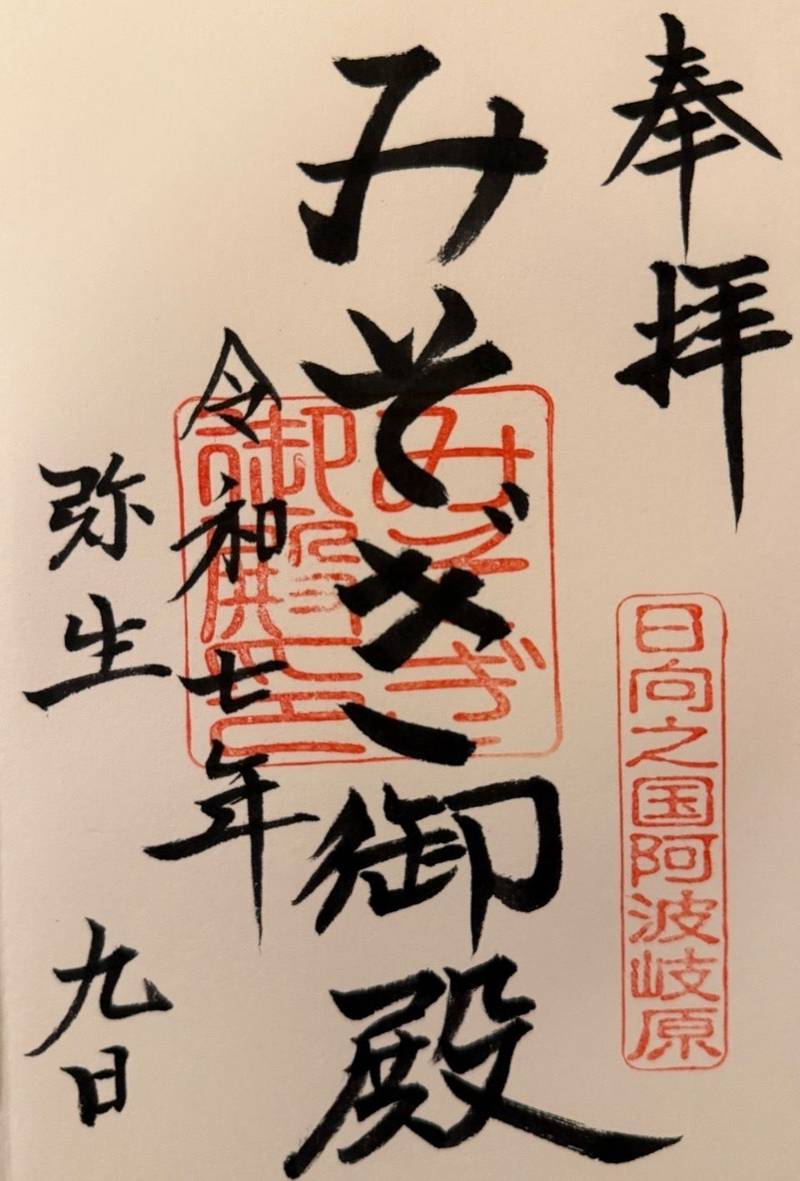 奉拝
日向之国阿波岐原
みそぎ御殿
みそぎ
御殿印
令和七年
弥生 九日